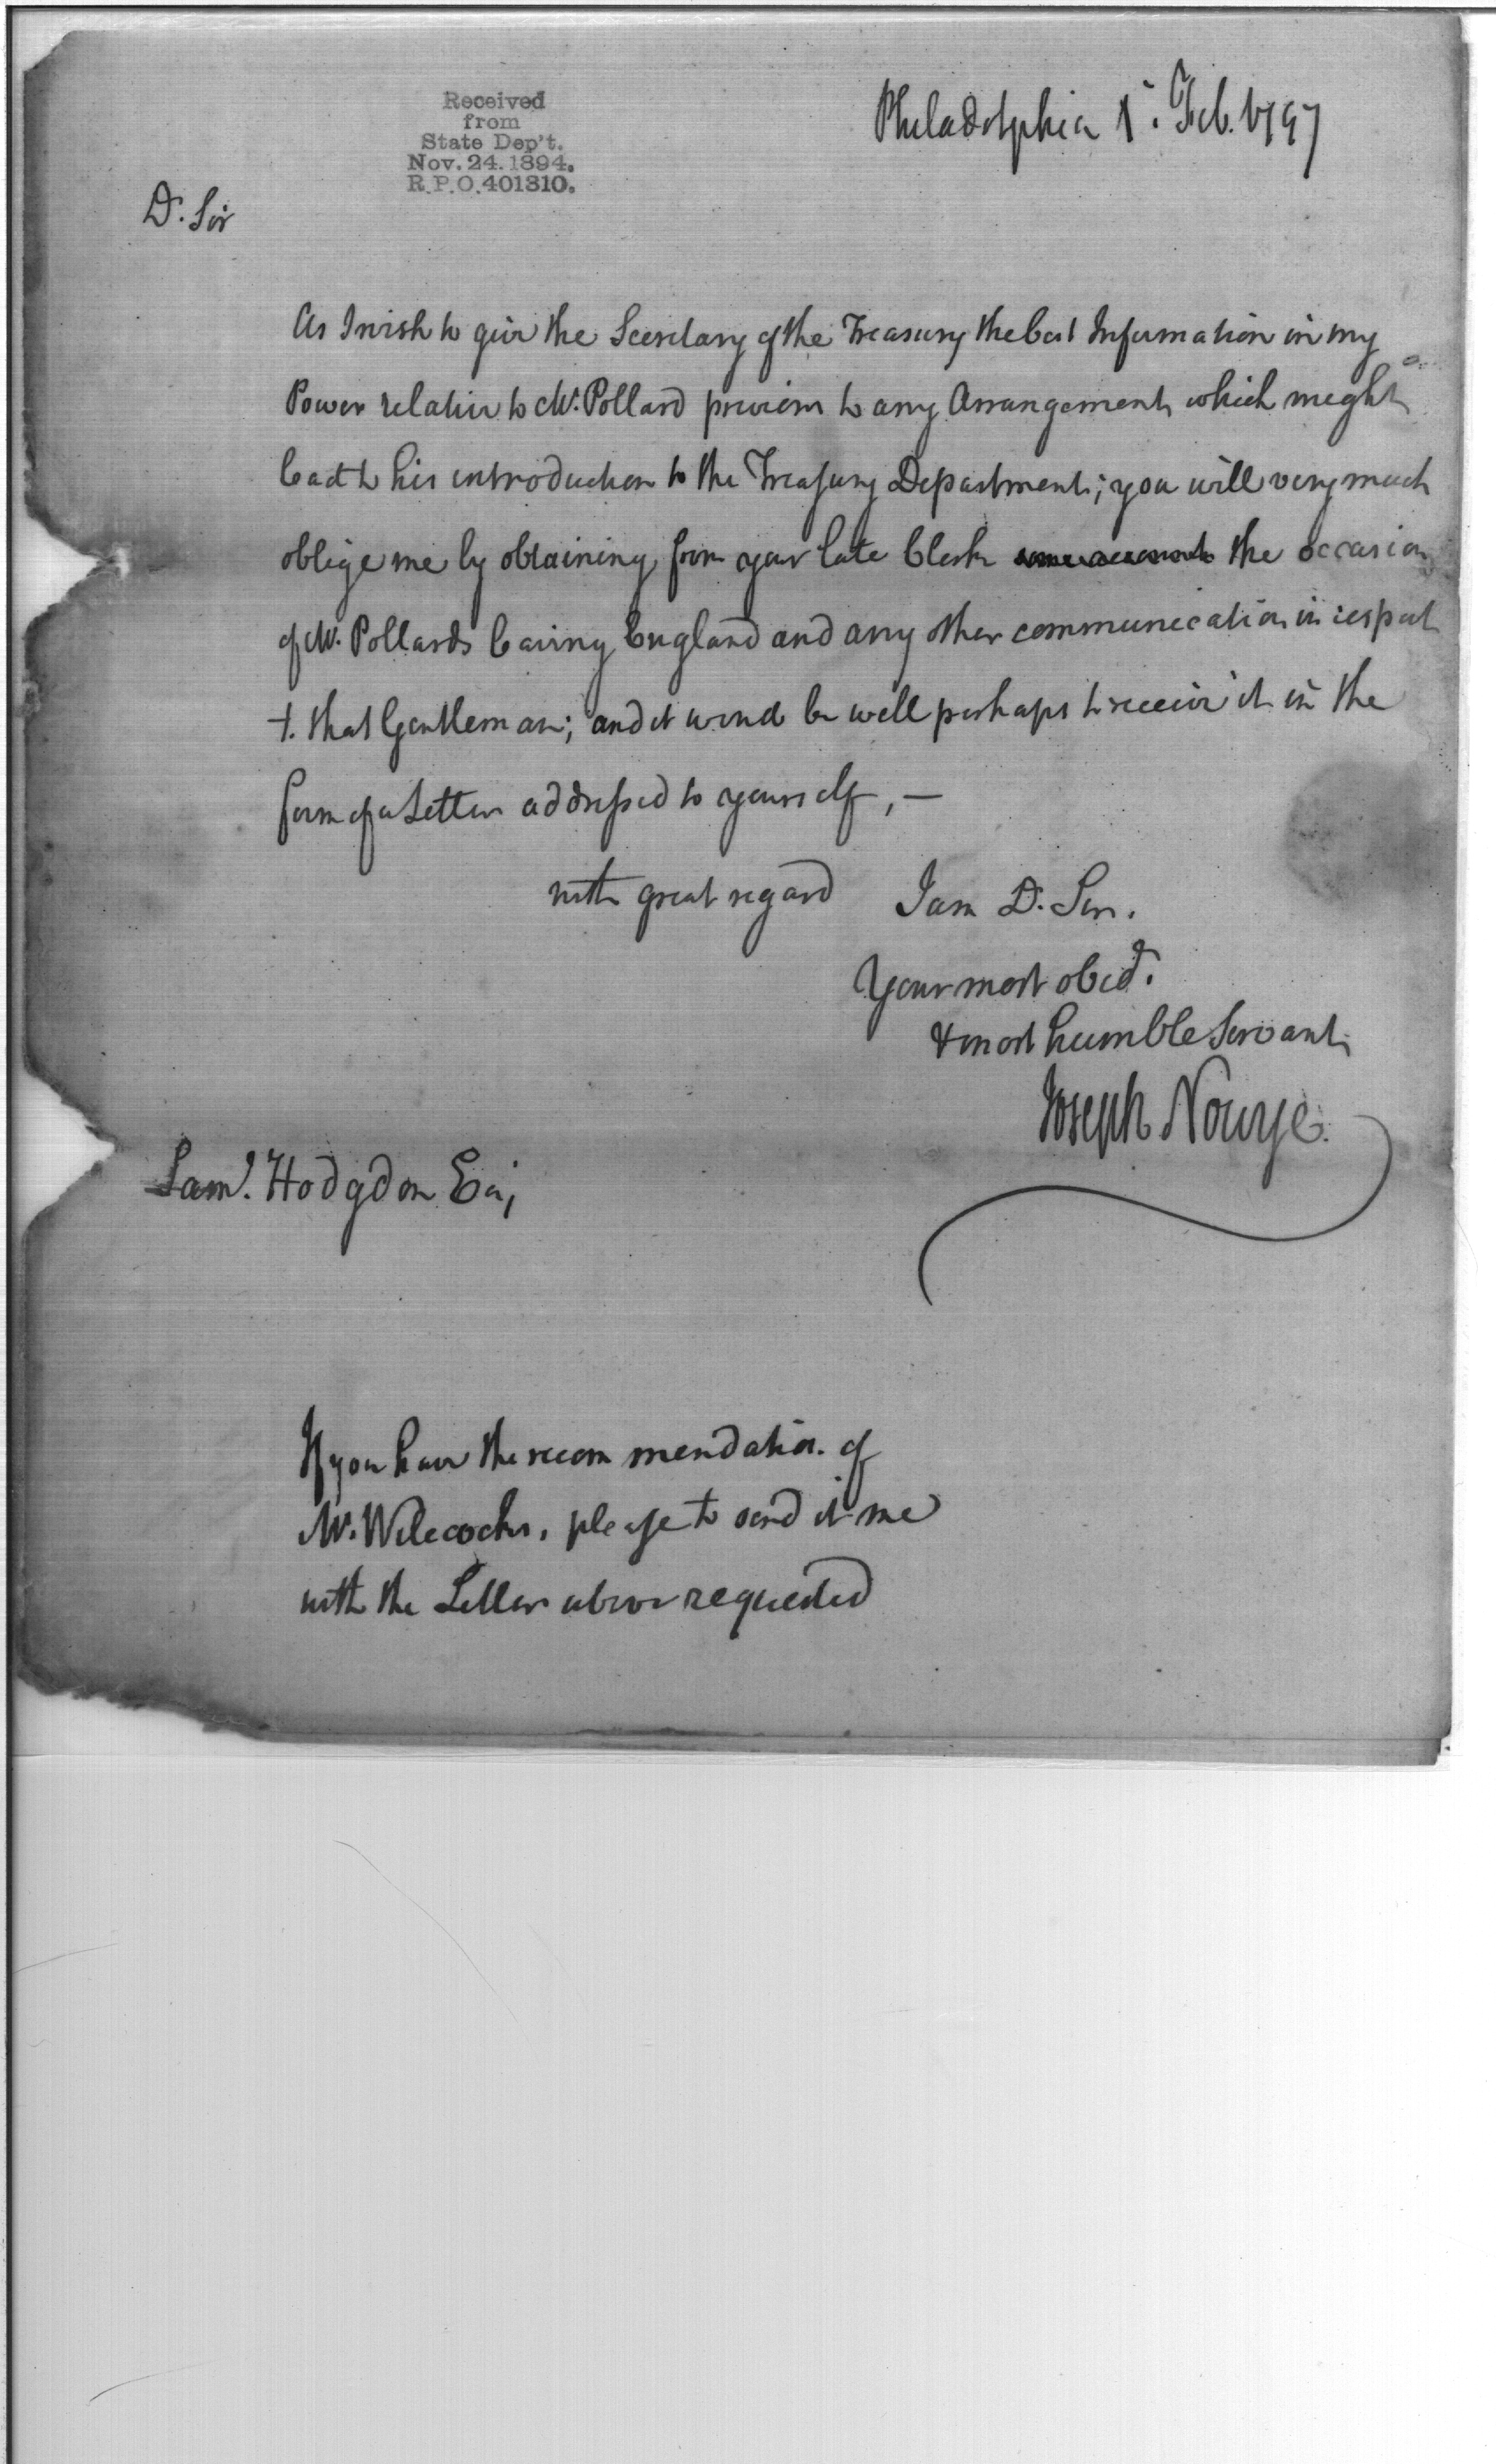 Received
from
State Dep't.
Nov. 24. 1894.
R.P.O. 401310.
Philadelphia 1. Feb. 1797
Dr. Sir
As I wish to give the Secretary of the Treasury the best Information in my
Power relative to Mr. Pollard previous to any Arrangement which might
lead to his introduction to the Treasury Department; you will very much
oblige me by obtaining from your late Clerk the occasion
of Mr. Pollards leaving England and any other communication in respect
to that Gentleman; and it would be well perhaps to receive it in the
form of a Letter addressed to yourself, —
with great regard I am Dr. Sir.
Your most obedt.
& most humble Servant
Joseph Nourse.
Saml. Hodgdon Esq;
If you have the recommendation of
Mr. Wilcocks, please to send it me
with the Letter above requested